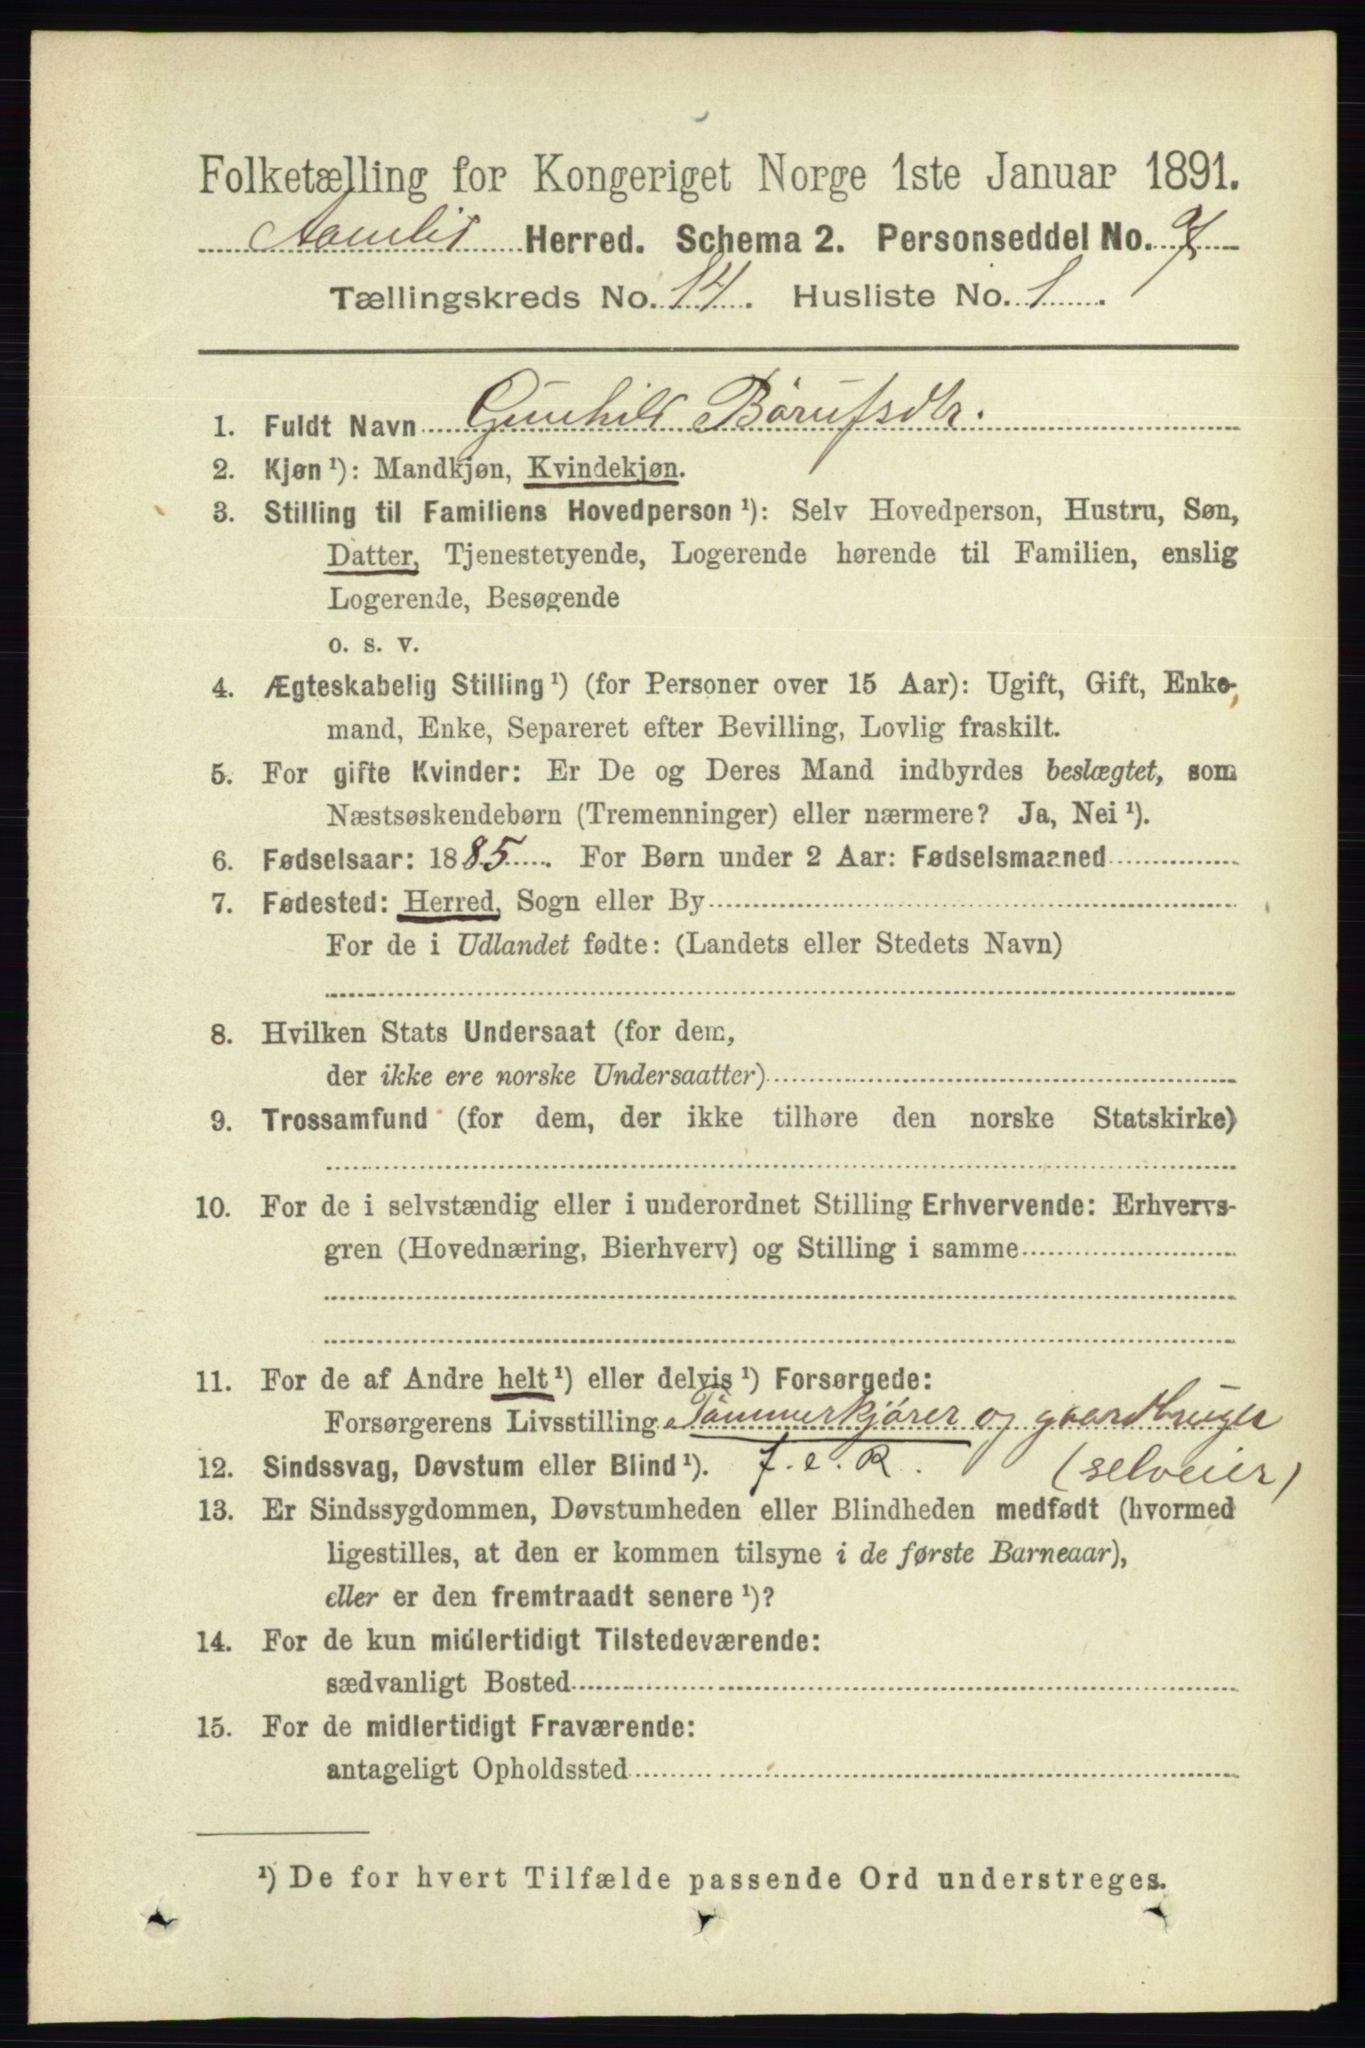 Folketælling for Kongeriget Norge 1ste Januar 1891.
Aamlid Herred. Schema 2. Personseddel No.
Tællingskreds No. 14. Husliste No. 1.
1. Fuldt Navn Gunhild Børufsdtr.
2. Kjøn ¹): Mandkjøn, Kvindekjøn.
3. Stilling til Familiens Hovedperson ¹): Selv Hovedperson, Hustru, Søn,
Datter, Tjenestetyende, Logerende hørende til Familien, enslig
Logerende, Besøgende
o. s. v.
4. Ægteskabelig Stilling ¹) (for Personer over 15 Aar): Ugift, Gift, Enke-
mand, Enke, Separeret efter Bevilling, Lovlig fraskilt.
5. For gifte Kvinder: Er De og Deres Mand indbyrdes beslægtet, som
Næstsøskendebørn (Tremenninger) eller nærmere? Ja, Nei ¹).
6. Fødselsaar: 1885. For Børn under 2 Aar: Fødselsmaaned
7. Fødested: Herred, Sogn eller By
For de i Udlandet fødte: (Landets eller Stedets Navn)
8. Hvilken Stats Undersaat (for dem,
der ikke ere norske Undersaatter)
9. Trossamfund (for dem, der ikke tilhøre den norske Statskirke)
10. For de i selvstændig eller i underordnet Stilling Erhvervende: Erhvervs-
gren (Hovednæring, Bierhverv) og Stilling i samme
11. For de af Andre helt ¹) eller delvis ¹) Forsørgede:
Forsørgerens Livsstilling Tømmerkjører og gaardbruger
12. Sindssvag, Døvstum eller Blind ¹). f. e. R. (selveier)
13. Er Sindssygdommen, Døvstumheden eller Blindheden medfødt (hvormed
ligestilles, at den er kommen tilsyne i de første Barneaar),
eller er den fremtraadt senere ¹)?
14. For de kun midlertidigt Tilstedeværende:
sædvanligt Bosted
15. For de midlertidigt Fraværende:
antageligt Opholdssted
¹) De for hvert Tilfælde passende Ord understreges.